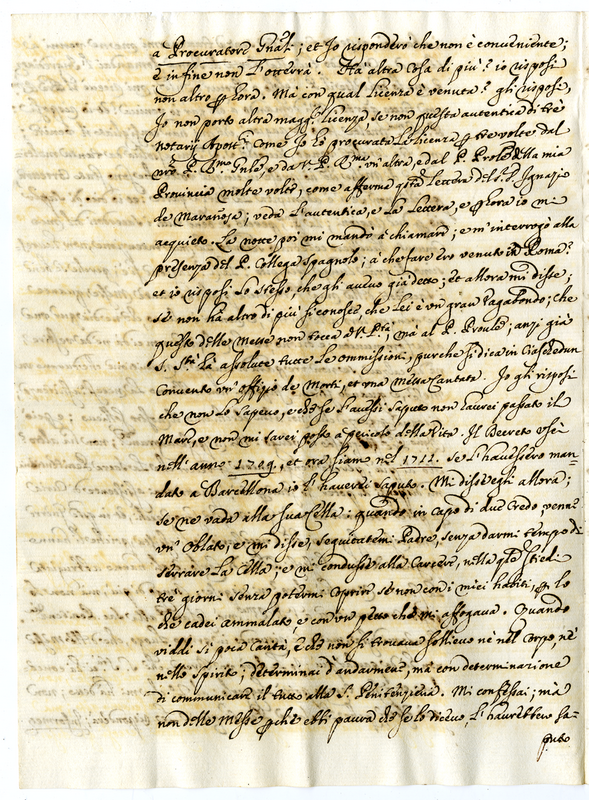 a Procuratore Gnãl; et Io risponderò che non è conveniente;
e in fine non l'otterrà. Hà altra cosa di più? io risposi
non altro ꝑ hora. Mà con qual Licenza è venuta? gli risposi,
Io non porto altra magg.r licenza, se non questa autentica di trè
notarij Apost.ci come Io hò procurata la licenza ꝑ tre volte dal
nrõ P. R.mo Gnãle, e da V. P. R.ma un'altra, e dal P. Proũle della mia
Provincia molte volte, come afferma q̃sta Lettera del S.r D. Ignazio
de Marañosa; veda l'autentica, e la Lettera, e ꝑ hora io mi
acquieto. La notte poi mi mandò à chiamare; e m'interrogò alla
presenza del P. Collega spagnolo; à che fare ero venuto in Roma?
et io risposi lo stesso, che gli avevo già detto; et allora mi disse;
sè non hà altro di più si conosce, che Lei è un gran Vagabondo; che
questo delle Messe non tocca à V. P.tà, mà al P. Proũle; anzi già
S. S.tà hà assolute tutte le ommissioni, purche si dica in ciascedun
Convento un' offizio de Morti, et una Messa Cantata. Io gli risposi
che non lo sapevo, e che se l'avessi saputo non haurei passato il
Mare, e non mi sarei posto a pericolo della Vita. Il Decreto uscì
nell'anno 1709., et ora siamo nel 1711. se l'havessero man=
dato a Barcellona io l'haverei saputo. Mi disse egli allora;
se ne vada alla sua Cella: quando in capo di due Credo, venne
un' Oblato, e mi disse, seguitatemi Padre, senza darmi tempo di
serrare la Cella; e mi condusse alla Carcere, nella qle stiedi
trè giorni senza potermi coprire se non con i miei habiti, ꝑ lo
che cadei ammalato e con un petto che mi affogava. Quando
viddi si poca carità, e che non si trovava sollievo nè nel corpo, nè
nello spirito; determinai d'andarmene, mà con determinazione
di communicare il tutto alla S. Penitenzieria. Mi confessai; mà
non delle Messe ꝑche ebbi paura che se lo dicevo, l'haurebbero sa=
puto